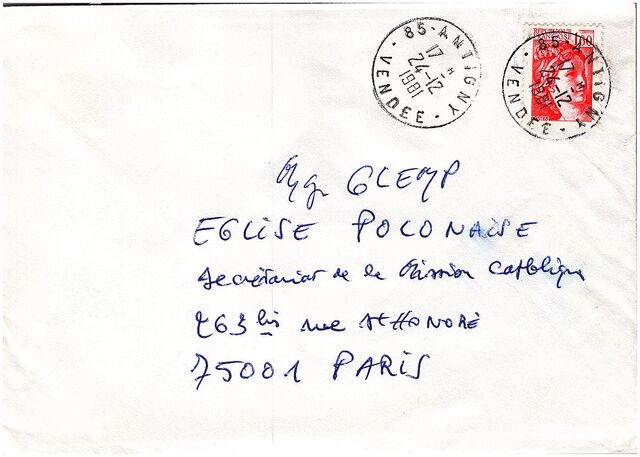 85-ANTIGNY
17 H
24-12
1981
VENDEE
1,60
85-ANTIGNY
17 H
24-12
1981
VENDEE
Mgr GLEMP
EGLISE POLONAISE
Secrétariat de la Mission Catholique
263 bis rue St HONORÉ
75001 PARIS